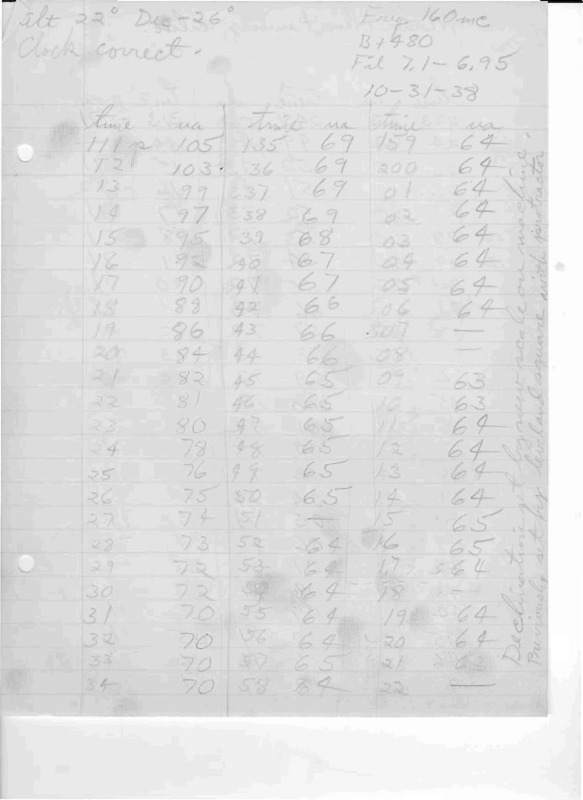 Tilt 22° Dec -26°
Clock correct.
Freq 160 mc
B+ 480
Fil 7.1 - 6.95
10-31-38
time ua time ua time ua
111 p 105 135 69 159 64
12 103 36 69 200 64
13 99 37 69 01 64
14 97 38 69 02 64
15 95 39 68 03 64
16 92 40 67 04 64
17 90 41 67 05 64
18 88 42 66 06 64
19 86 43 66 07 —
20 84 44 66 08 —
21 82 45 65 09 63
22 81 46 65 10 63
23 80 47 65 11 64
24 78 48 65 12 64
25 76 49 65 13 64
26 75 50 65 14 64
27 74 51 — 15 65
28 73 52 64 16 65
29 72 53 64 17 64
30 72 54 64 18 —
31 70 55 64 19 64
32 70 56 64 20 64
33 70 57 65 21 63
34 70 58 64 22 —
Declination set by new scale on machine.
Previously set by level and square with protractor